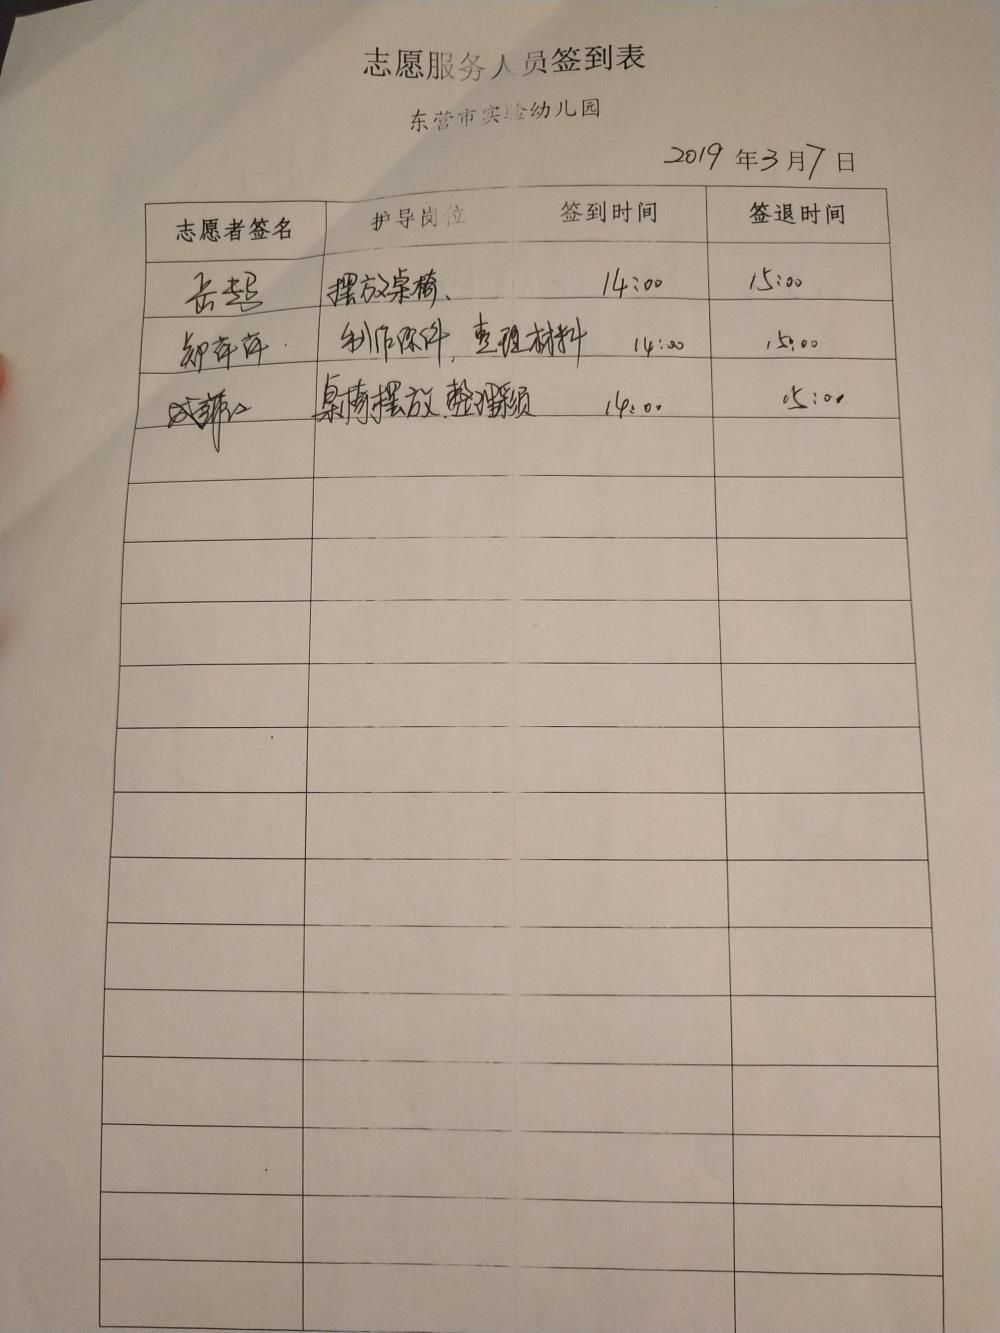 志愿服务人员签到表
东营市实验幼儿园
2019 年 3 月 7 日
志愿者签名 护导岗位 签到时间 签退时间
岳超 摆放桌椅、 14:00 15:00
郑存存 制作课件，整理材料 14:00 15:00
桌椅摆放、整理 14:00 15:00